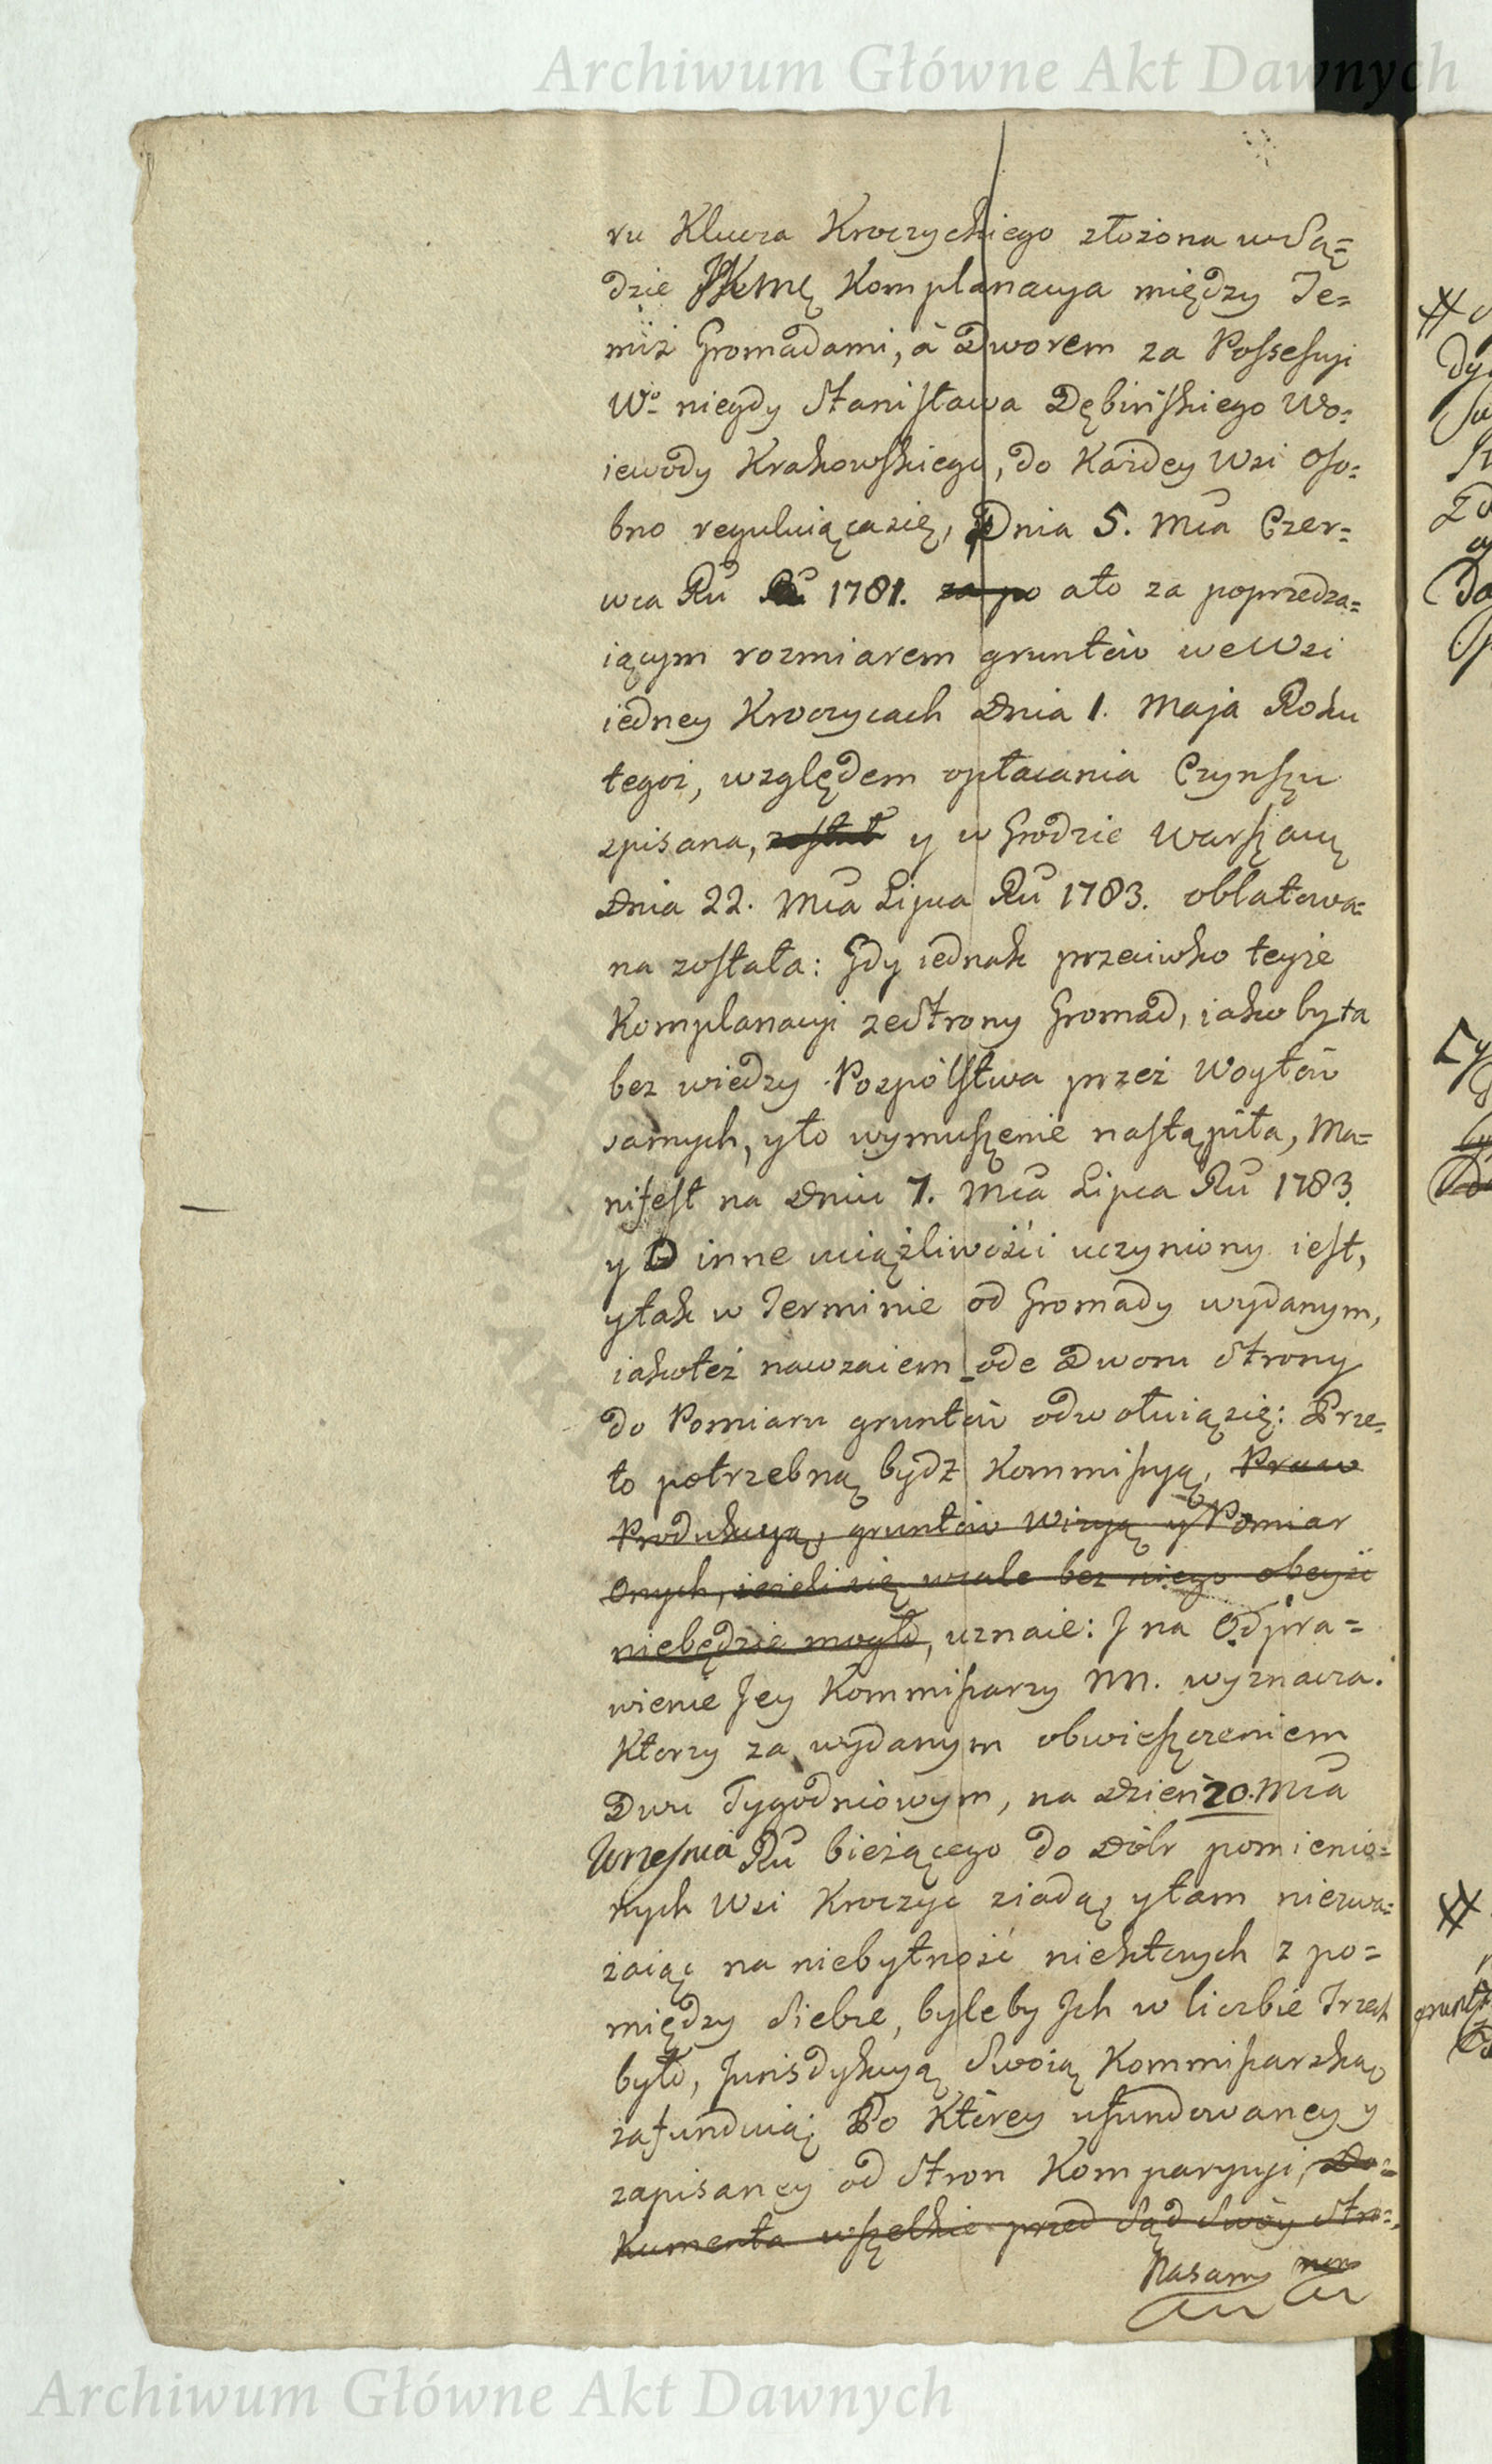 Archiwum Główne Akt Dawnych
ru Klucza Kroczyckiego złożona w Są=
dzie Komplanacya między Te=
miż Gromadami, à Dworem za Possessyi
Wo niegdy Stanisława Dębińskiego Wo:
iewody Krakowskiego, do Każdey Wsi oso:
bno reguluiąca się, Dnia 5. Mca Czer=
wca Ru 1781. za po ato za poprzedza=
iącym rozmiarem gruntów we Wsi
iedney Kroczycach Dnia 1. Maja Roku
tegoż, względem opłacania Czynszu
spisana, został y w Grodzie Warszaw
Dnia 22. Mca Lipca Ru 1783. oblatowa=
na została: Gdy iednak przeciwko teyże
Komplanacyi ze Strony Gromad, iakoby ta
bez wiedzy Pospólstwa przez Woytów
samych, y to wymuszenie nastąpiła, Ma=
nifest na Dniu 7. Mca Lipca Ru 1783.
y o inne uciążliwości uczyniony iest,
y tak w Terminie od Gromady wydanym,
iako też nawzaiem ode Dworu Strony
do Pomiaru gruntów odwołuią się: Prze=
to potrzebną bydz Kommissyą, Praw
Produkcyą, gruntów Wizyą y Pomiar
onych, ieżeli się wcale bez niego obeyść
niebędzie mogło, uznaie: J na Odpra=
wienie Jey Kommissarzy NN. wyznacza.
Ktorzy za wydanym obwieszczeniem
Dwu Tygodniowym, na Dzień 20. Mca
Września Ru bieżącego do Dóbr pomienio=
nych Wsi Kroczyc ziadą, y tam niezwa=
żaiąc na niebytność niektorych z po=
między Siebie, byleby Jch w liczbie Trzech
było, Jurisdykcyą Swoią Kommissarską
zafunduią; Po Którey ufundowaney y
zapisaney od Stron Komparycyi, Do=
kumenta wszelkie przed Sąd Swóy Stro=
Nasam
Archiwum Główne Akt Dawnych